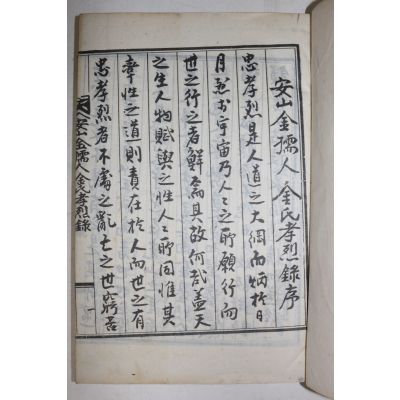 安山金孺人 金氏孝烈錄序
忠孝烈是人道之大綱而炳於日
月於宇宙乃人〻之所願行而
世之行之者鮮焉其故何哉盖天
之生人物賦與之性人〻所同惟其
率性之道則責在於人而世之有
忠孝烈者不處之亂亡之世窮苦
安山金孺人金氏孝烈錄
一